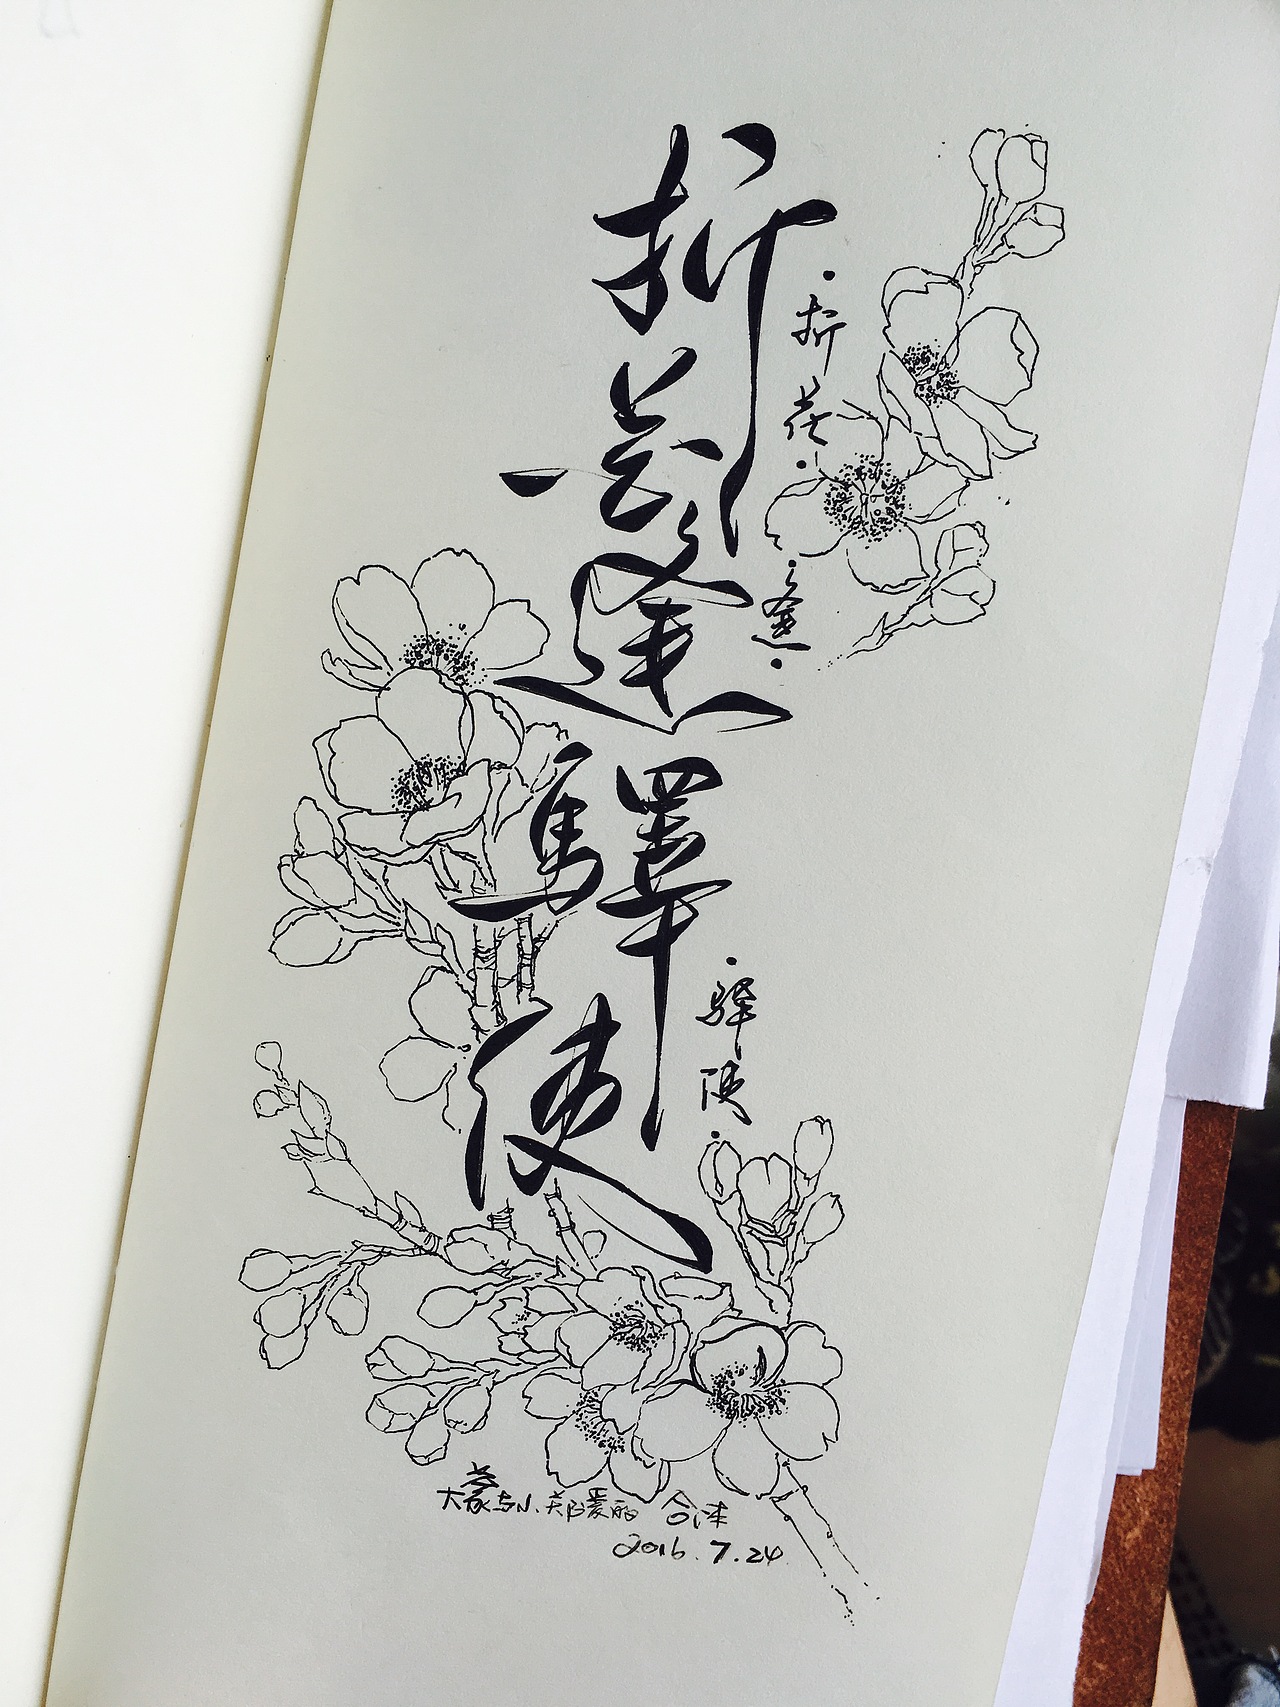 折花逢驛使
·折花·
·逢·
·驿使·
大蒙与小郑爱
2016.7.24